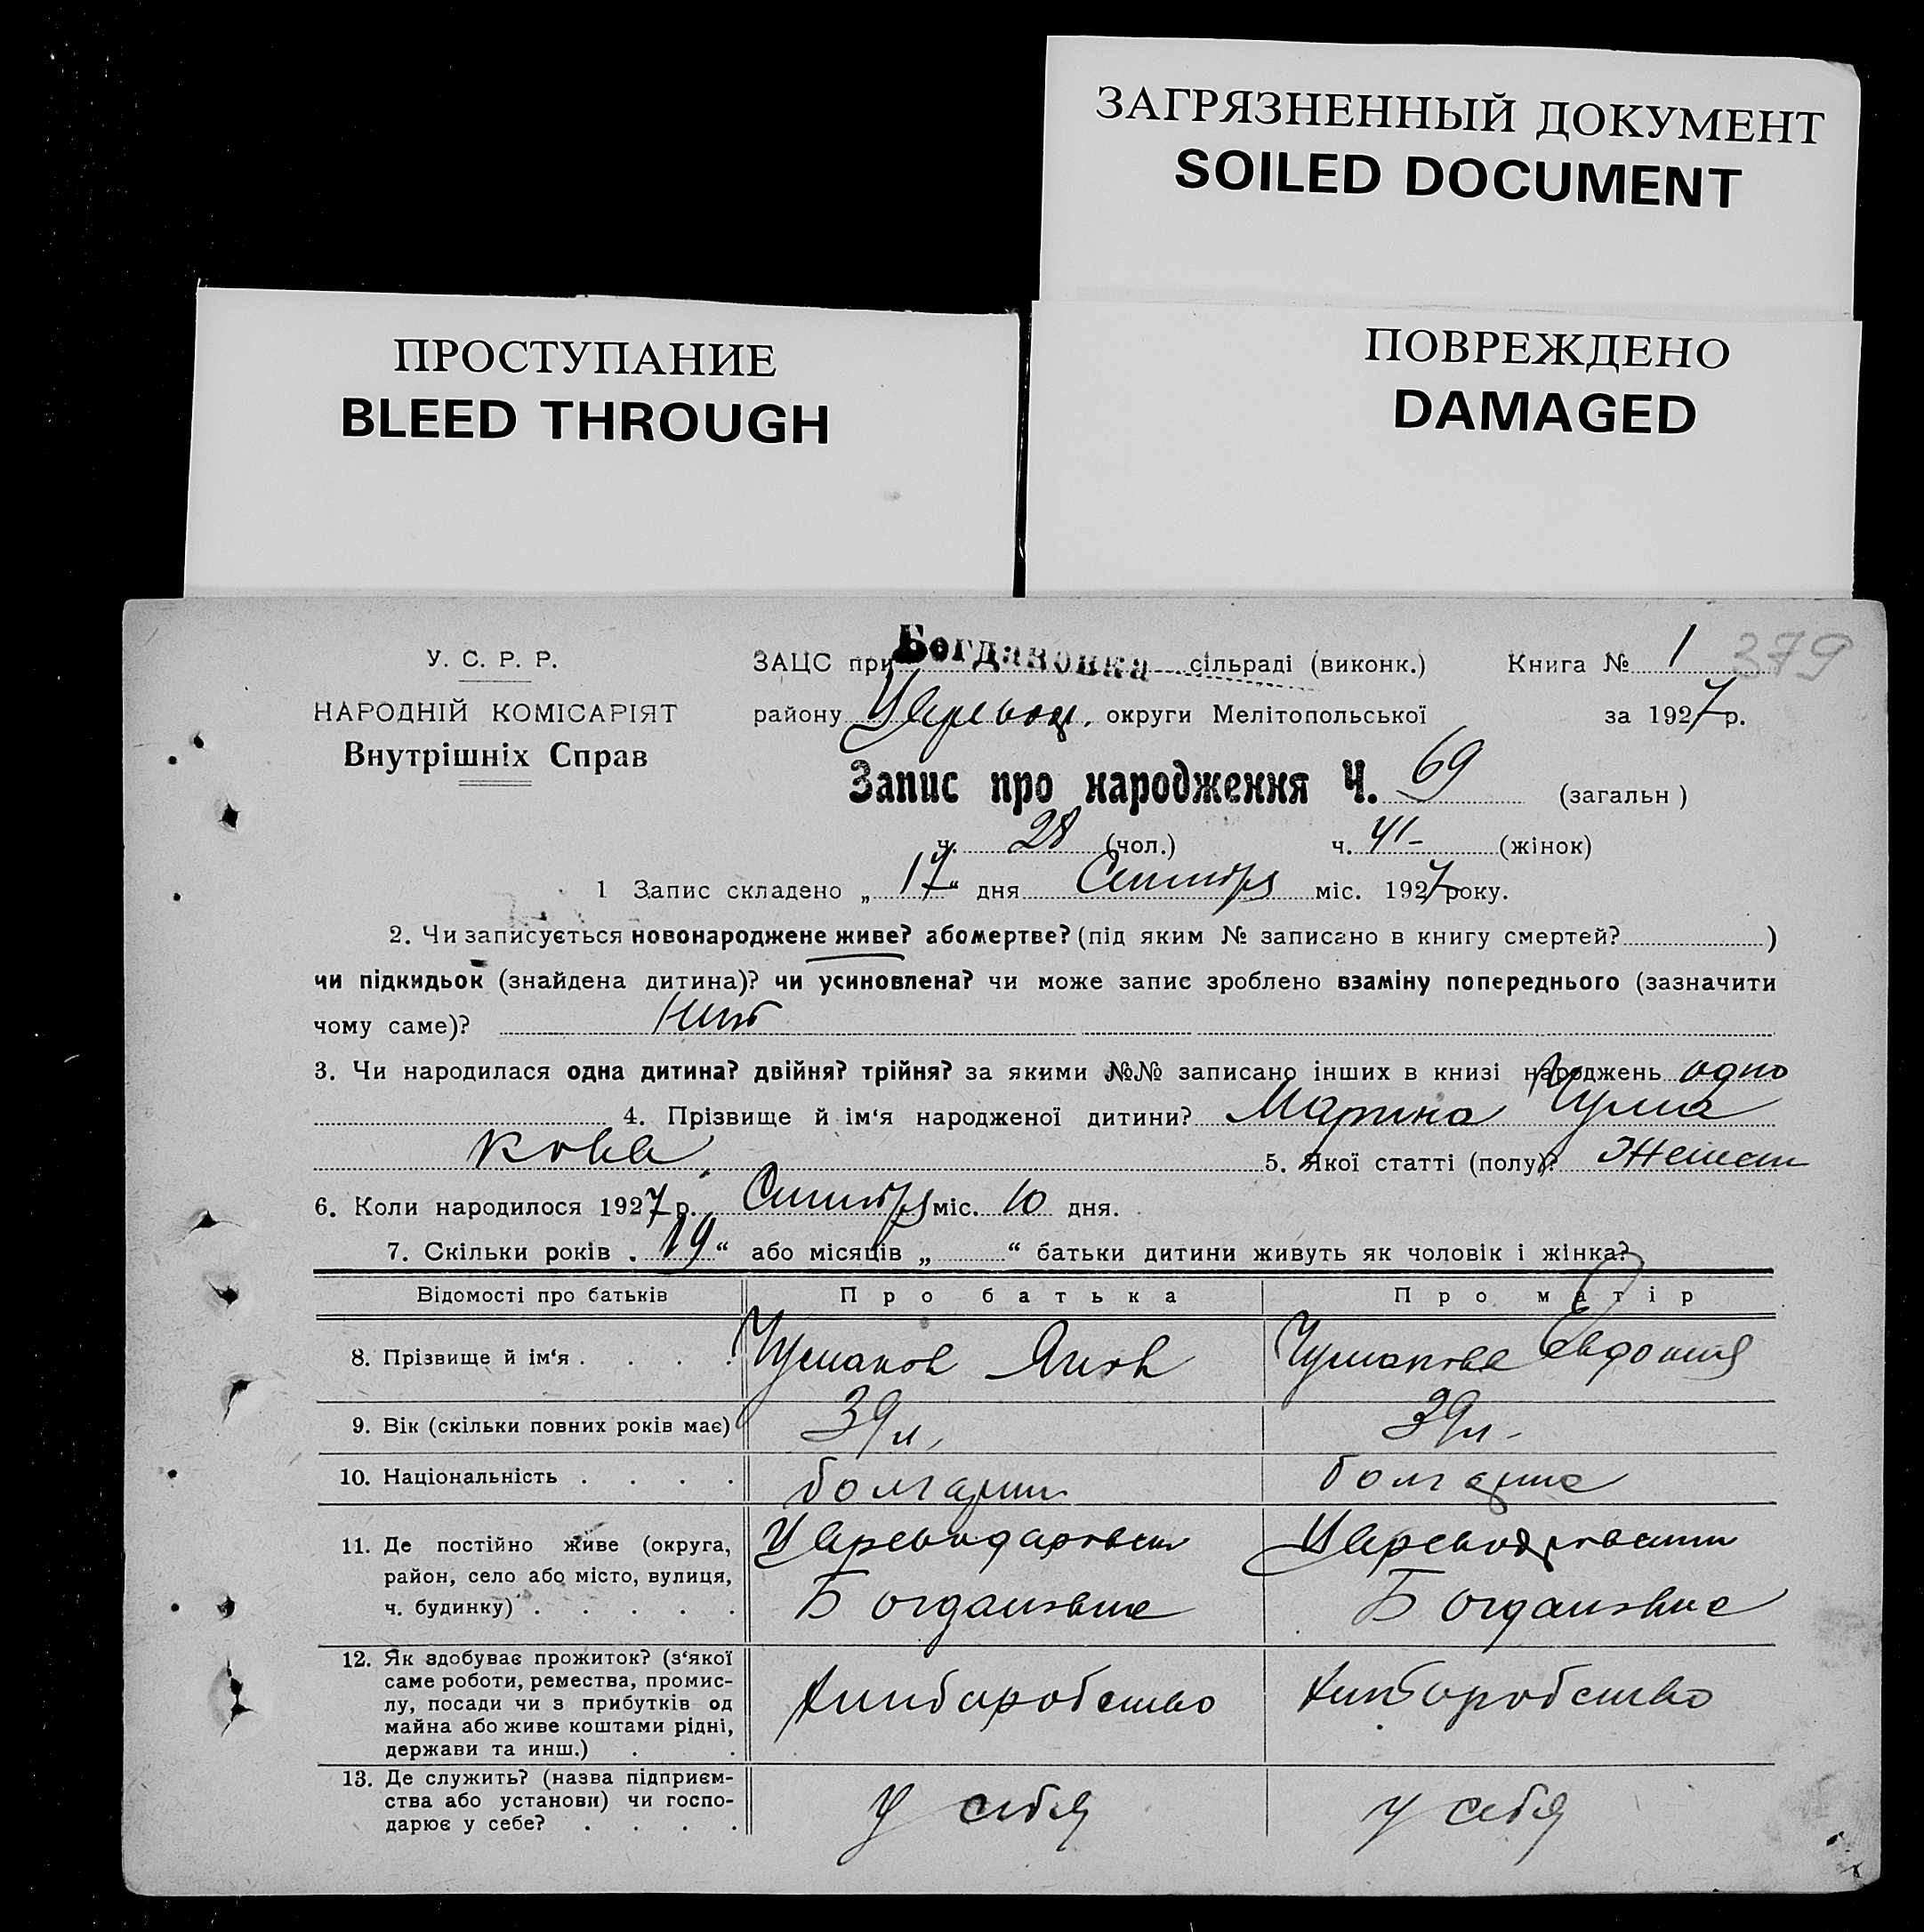 ЗАГРЯЗНЕННЫЙ ДОКУМЕНТ
SOILED DOCUMENT
ПРОСТУПАНИЕ
BLEED THROUGH
ПОВРЕЖДЕНО
DAMAGED
У. С. Р. Р.
НАРОДНІЙ КОМІСАРІЯТ
Внутрішніх Справ
ЗАЦС при Богдановка сільраді (виконк.) Книга № 1 379
району Царевод. округи Мелітопольської за 1927 р.
Запис про народження Ч. 69 (загальн)
ч. 28 (чол.) ч. 41- (жінок)
1 Запис складено „17“ дня Сентября міс. 1927 року.
2. Чи записується новонароджене живе? або мертве? (під яким № записано в книгу смертей? )
чи підкидьок (знайдена дитина)? чи усиновлена? чи може запис зроблено взаміну попереднього (зазначити
чому саме)? Нет
3. Чи народилася одна дитина? двійня? трійня? за якими №№ записано інших в книзі народжень одно
4. Прізвище й ім‘я народженої дитини? Марина Чума
кова 5. Якої статті (полу)? Женск
6. Коли народилося 1927 р. Сентября міс. 10 дня.
7. Скільки років „19“ або місяців „ “ батьки дитини живуть як чоловік і жінка?
Відомості про батьків Про батька Про матір
8. Прізвище й ім‘я . . . . Чумаков Яков Чумакова Евдокия
9. Вік (скільки повних років має) 39 л. 39 л.
10. Національність . . . . болгарин болгарка
11. Де постійно живе (округа,
район, село або місто, вулиця,
ч. будинку) . . . . .
Цареводаровск
Богдановка
Богдановка
12. Як здобуває прожиток? (з‘якої
саме роботи, ремества, промис-
лу, посади чи з прибутків од
майна або живе коштами рідні,
держави та инш.) . .
Хлиборобство Хлиборобство
13. Де служить? (назва підприєм-
ства або установи) чи госпо-
дарює у себе? . . . .
У себя у себя